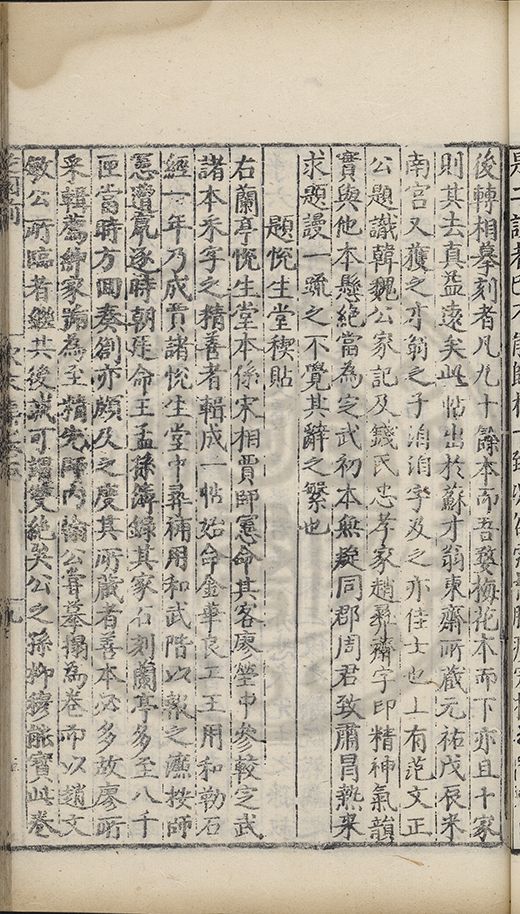 後轉相摹刻者凡九十餘本而吾婺梅花本而下亦且十家
則其去真益遠矣此帖出於蘇才翁東齋所藏元祐戊辰米
南宮又獲之才翁之子洎洎字及之亦佳士也上有范文正
公題識韓魏公家記及錢氏忠孝家趙彞齋字印精神氣韻
實與他本懸絕當為定武初本無疑同郡周君致肅冒熱來
求題謾一疏之不覺其辭之繁也
題悅生堂稧貼
右蘭亭悅生堂本係宋相賈師憲命其客廖瑩中參較定武
諸本禾字之精善者輯成一帖始命金華良工王用和勒石
經一年乃成賈諸悅生堂中彞補用和武階以報之濂按師
憲遭竄逐時朝廷命王孟孫濤錄其家石刻蘭亭多至八千
匣當時方回奏劄亦頗及之度其所藏者善本必多故廖所
采輯薦紳家號為至精先師內翰公甞摹搨為卷而以趙文
敏公所臨者繼其後誠可謂雙絕矣公之孫柳穆能寶此卷